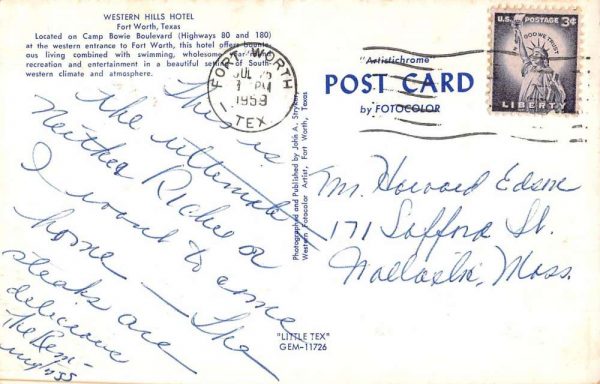 WESTERN HILLS HOTEL
Fort Worth, Texas
Located on Camp Bowie Boulevard (Highways 80 and 180)
at the western entrance to Fort Worth, this hotel offers
ous living combined with swimming, wholesome
recreation and entertainment in a beautiful setting of South-
western climate and atmosphere.
This is
the ultimate
Neither Richie or
I want to come
home — the
steaks are
delicious
The
FORT WORTH
JUL
PM
1959
TEX.
Photographed and Published by John A. Stryker,
Western Fotocolor Artist, Fort Worth, Texas
"Artistichrome
POST CARD
by FOTOCOLOR
"LITTLE TEX"
GEM-11726
U.S. POSTAGE 3¢
IN GOD WE TRUST
LIBERTY
Mr. Howard
171 Safford St.
Mass.